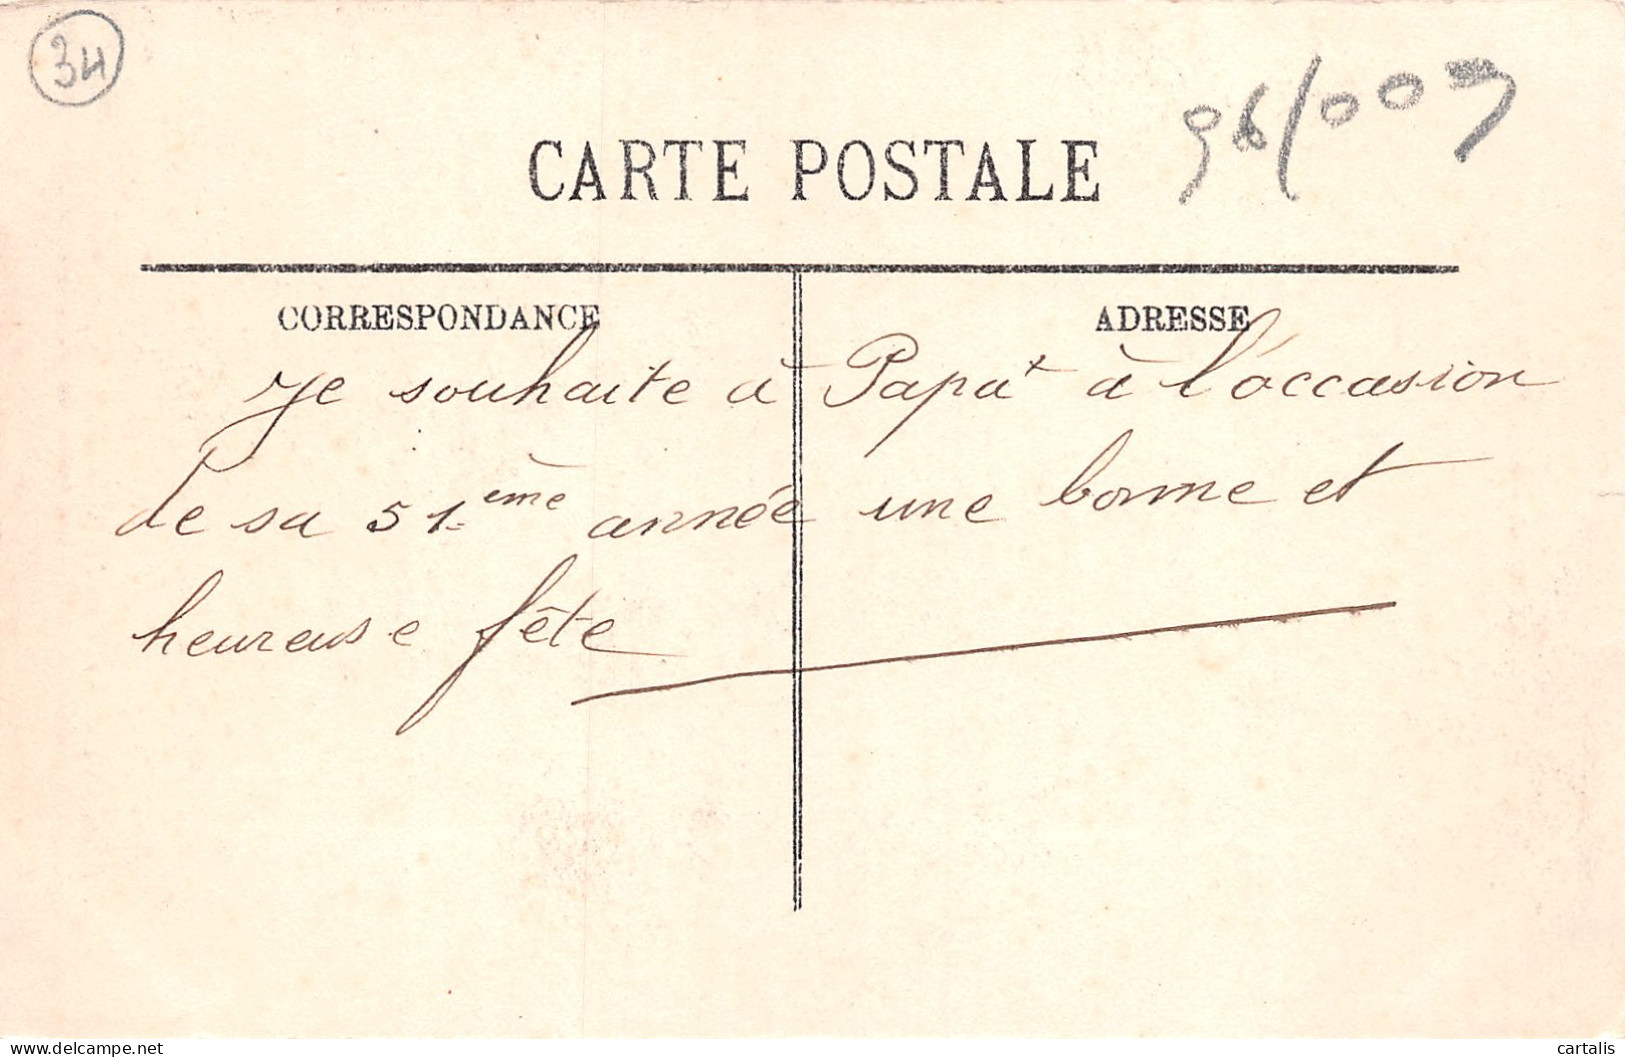 34
CARTE POSTALE
CORRESPONDANCE
ADRESSE
Je souhaite à Papa à l'occasion
de sa 51ème année une bonne et
heureuse fête
www.delcampe.net
cartalis